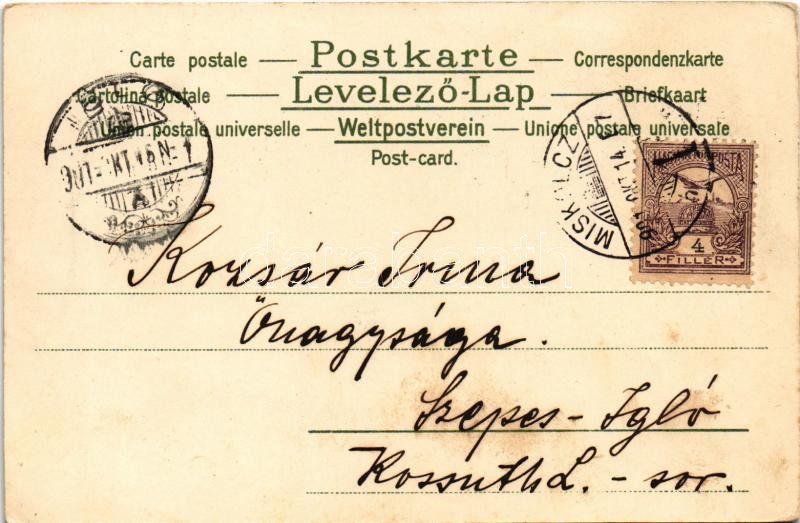 Carte postale — Postkarte — Correspondenzkarte
Cartolina postale — Levelező-Lap — Briefkaart
Union postale universelle — Weltpostverein — Unione postale universale
Post-card.
MISKOLCZ
901 OKT 14
MAGYAR KIR. POSTA
4
FILLÉR
Kozsár Irma
Őnagysága.
Szepes-Igló
Kossuth L. - sor.